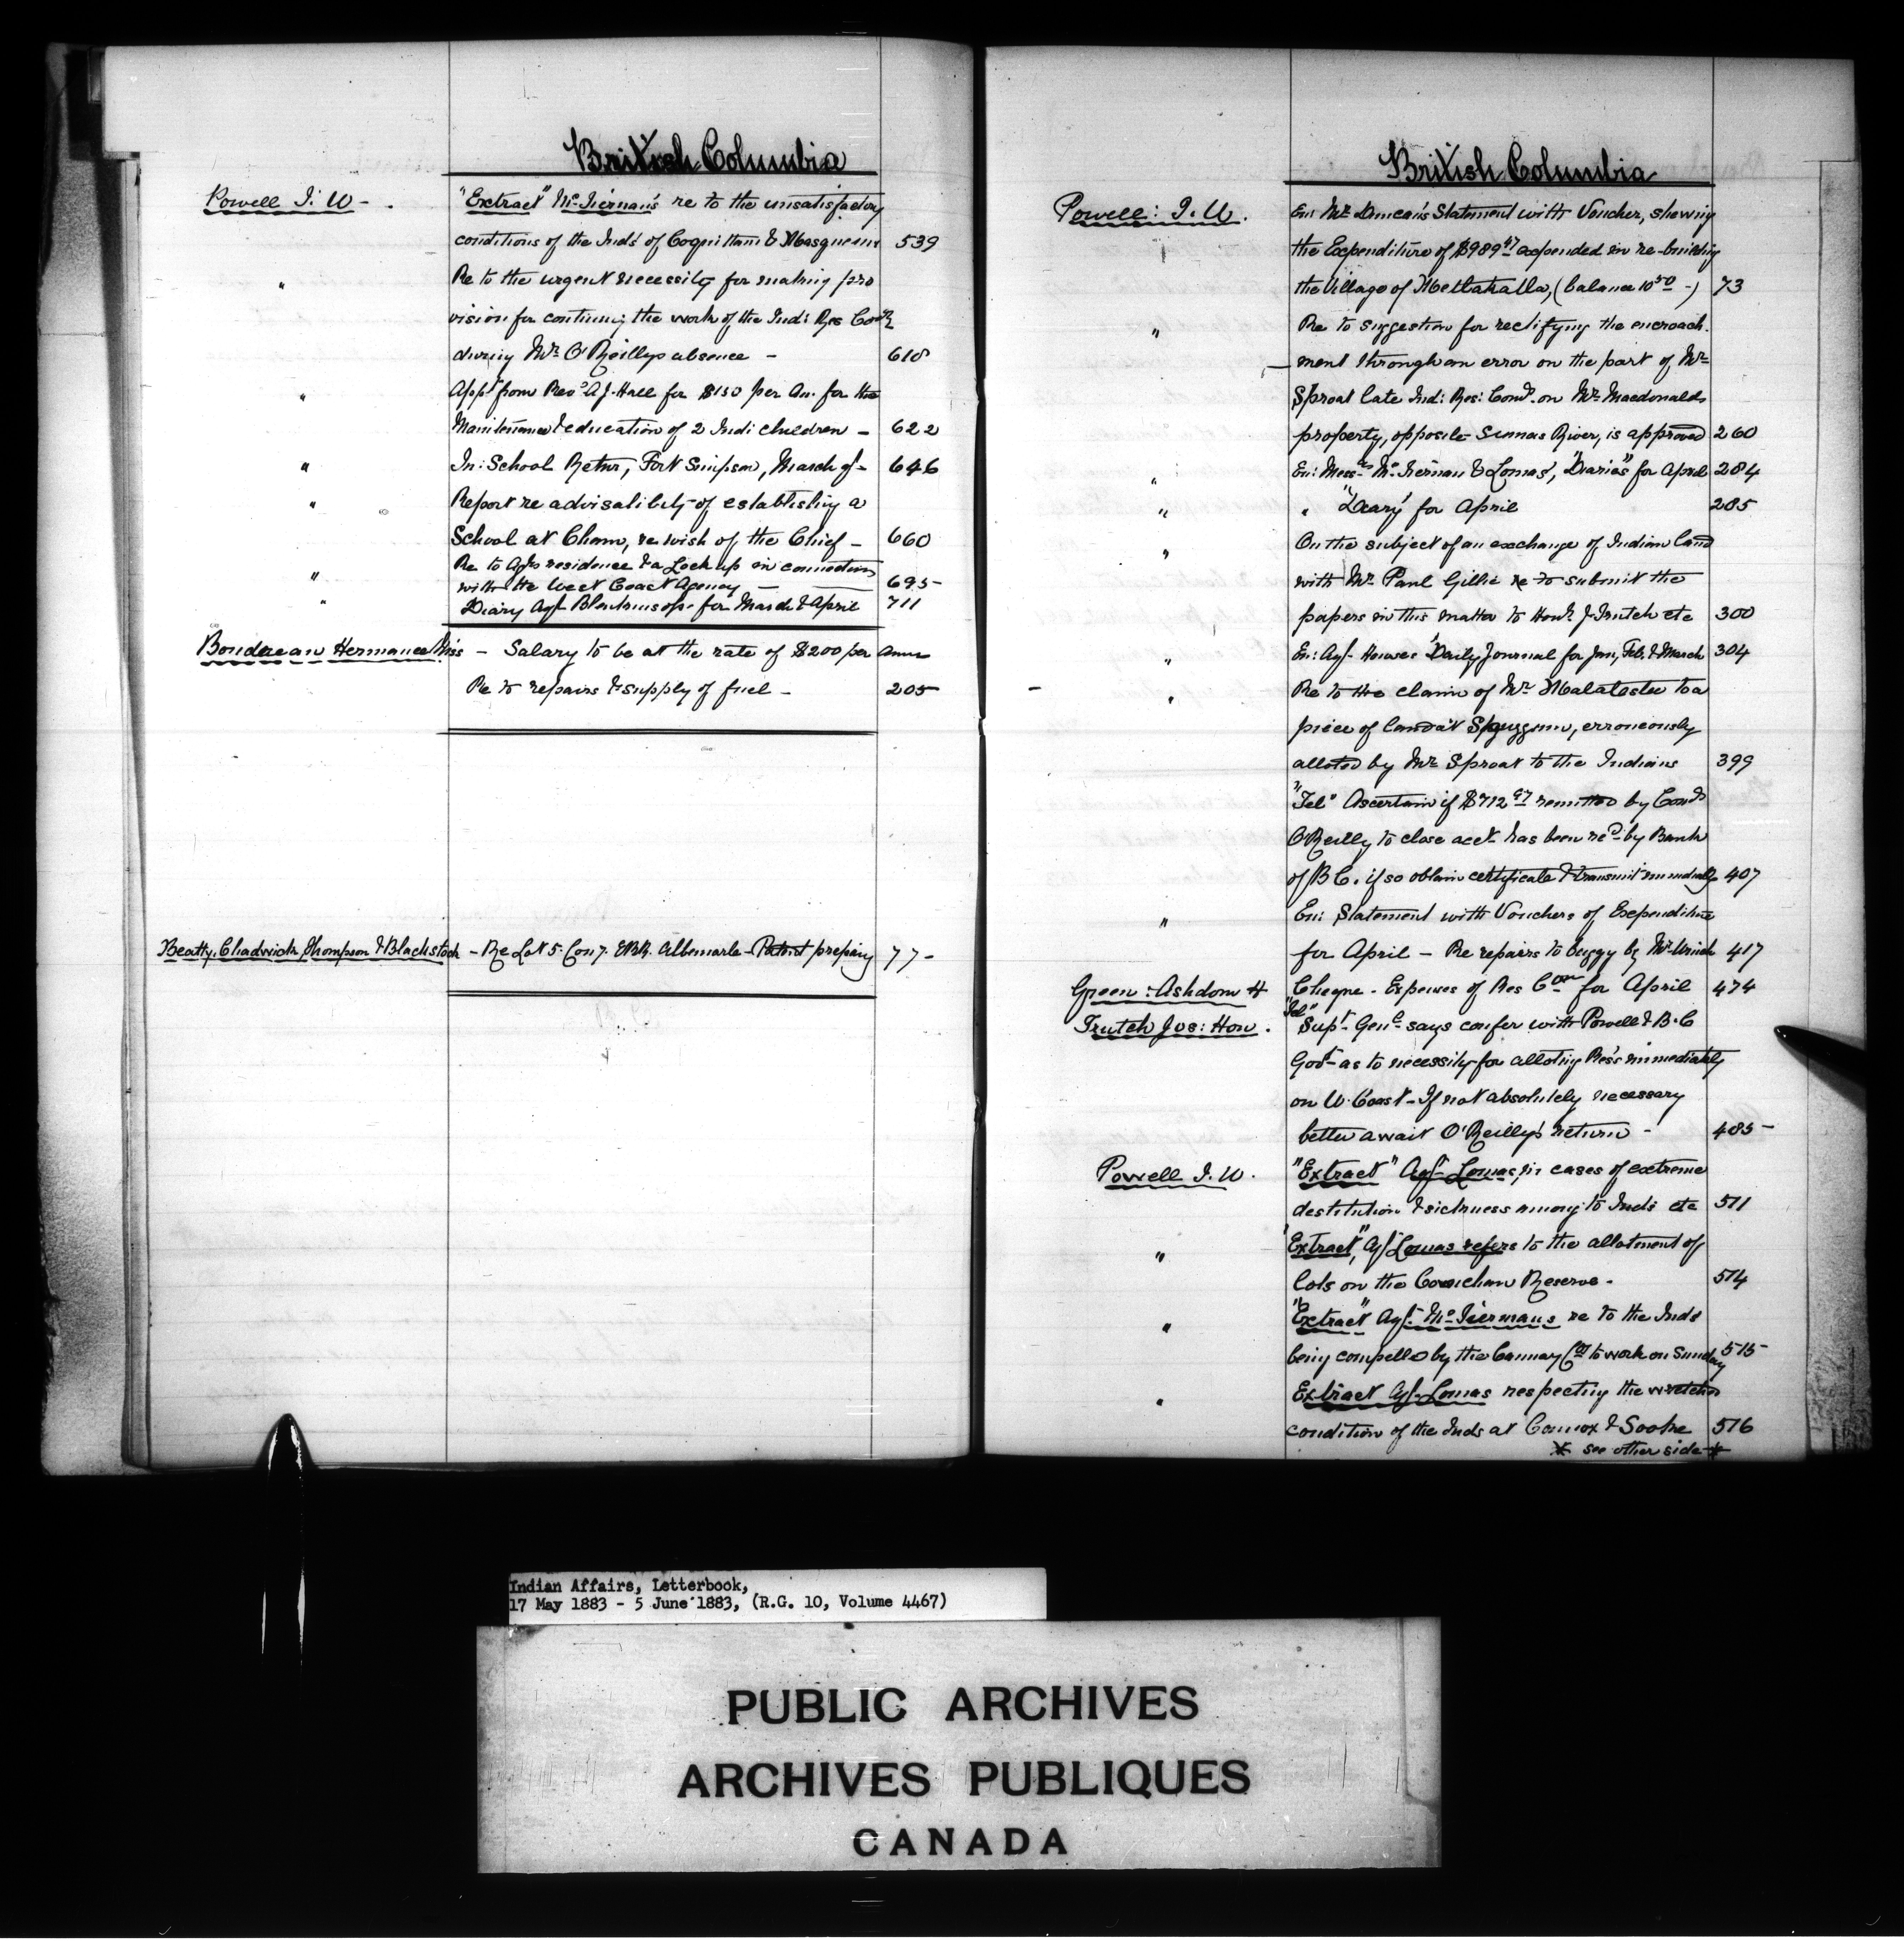 British Columbia
Powell I. W - . "Extract" McTiernan's re to the unsatisfactory
conditions of the Inds of Coquittam & Masqueam 539
" Re to the urgent necessity for making pro
vision for continuing the work of the Ind: Res Comr
during Mr O'Reillys absence - 618
" Appn from Revd A J. Hall for $150 per An. for the
Maintenance & education of 2 Indi children - 622
" In: School Retur, Fort Simpson, March qr - 646
" Report re advisability of establishing a
School at Cheam, re wish of the Chief - 660
" Re to Agts residence & a Lock up in connection
with the West Coast Agency - 695-
" Diary Agt Blenkinsop for March & April 711
Boudreau Hermance Miss - Salary to be at the rate of $200 per Annum
Re to repairs & supply of fuel - 205
Beatty, Chadwick Thompson & Blackstock - Re Lot 5 Con 7. EBR. Albemarle - Patent preparing 77 -
British Columbia
Powell: I. W. En: Mr Duncan's Statement with Voucher, shewing
the Expenditure of $989.47 expended in re-building
the Village of Metlakatla, (balance 10 50 -) 73
" Re to suggestion for rectifying the encroach.
- ment through an error on the part of Mr
Sproat late Ind: Res: Comr. on Mr Macdonalds
property, opposite Sumas River, is approved 260
" En: Messrs McTiernan & Lomas', "Diaries" for April 284
" " "Diary" for April 285
" On the subject of an exchange of Indian land
with Mr Paul Gillie re to submit the
papers in this matter to Honl J Trutch etc 300
" En: Agt Howse Daily Journal for Jan, Feb, & March 304
- " Re to the claim of Mr Malatesta to a
piece of land at Spuzzum, erroneously
alloted by Mr Sproat to the Indians 399
"Tel" Ascertain if $712 97 remitted by Comr
O'Reilly to close acct has been recd by Bank
of B C. if so obtain certificate & transmit immediatly 407
" En: Statement with Vouchers of Expenditure
for April - Re repairs to buggy by Mr 417
Green: Ashdown H Cheque - Expenses of Res Com for April 474
Trutch Jos: Hon. "Tel" Supt Genl says confer with Powell & B. C
Govt as to necessity for alloting Res's immediately
on W. Coast - If not absolutely necessary
better await O'Reilly's return - 485 -
Powell I. W. "Extract" Agt Lomas, in cases of extreme
destitution & sickness among to Inds etc 511
" "Extract", Agt Lomas refers to the allotment of
lots on the Cowichan Reserve. 514
" "Extract" Agt. McTiermans re to the Inds
being compelled by the Cannary Co to work on Sunday 515 -
" Extract Agt Lomas respecting the wretched
condition of the Inds at Comox & Sooke 516
* see other side *
Indian Affairs, Letterbook,
17 May 1883 - 5 June 1883, (R.G. 10, Volume 4467)
PUBLIC ARCHIVES
ARCHIVES PUBLIQUES
CANADA